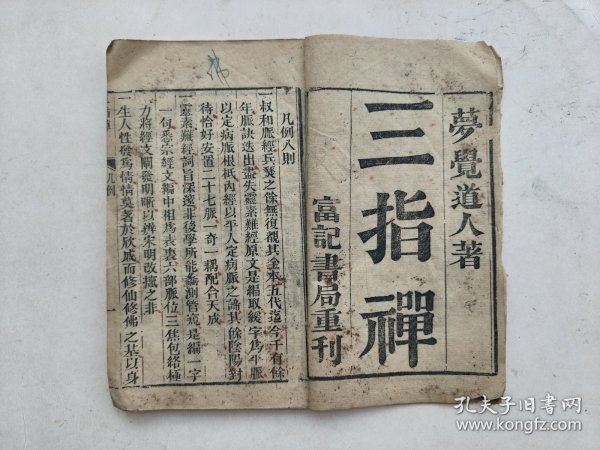 夢覺道人著
三指禪
富記書局重刊
凡例八則
一叔和脈經兵燹之餘無復覩其全本五代迄今千有餘
年脈訣迭出盡失靈素難經原文是編取緩字為平脈
以定病脈根柢內經以平人定病脈之論其餘陰陽對
待恰好安置二十七脈一奇一耦配合天成
一靈素難經詞旨深邃非後學所能蠡測管窺是編一字
一句悉宗經文編中祖為表裏六部脈位三焦包絡極
力將經文闡發明晰以辨宋明改竄之非
一生人性發為情情莫著於欣戚而修仙修佛之基以身
凡例
孔夫子旧书网
www.kongfz.com